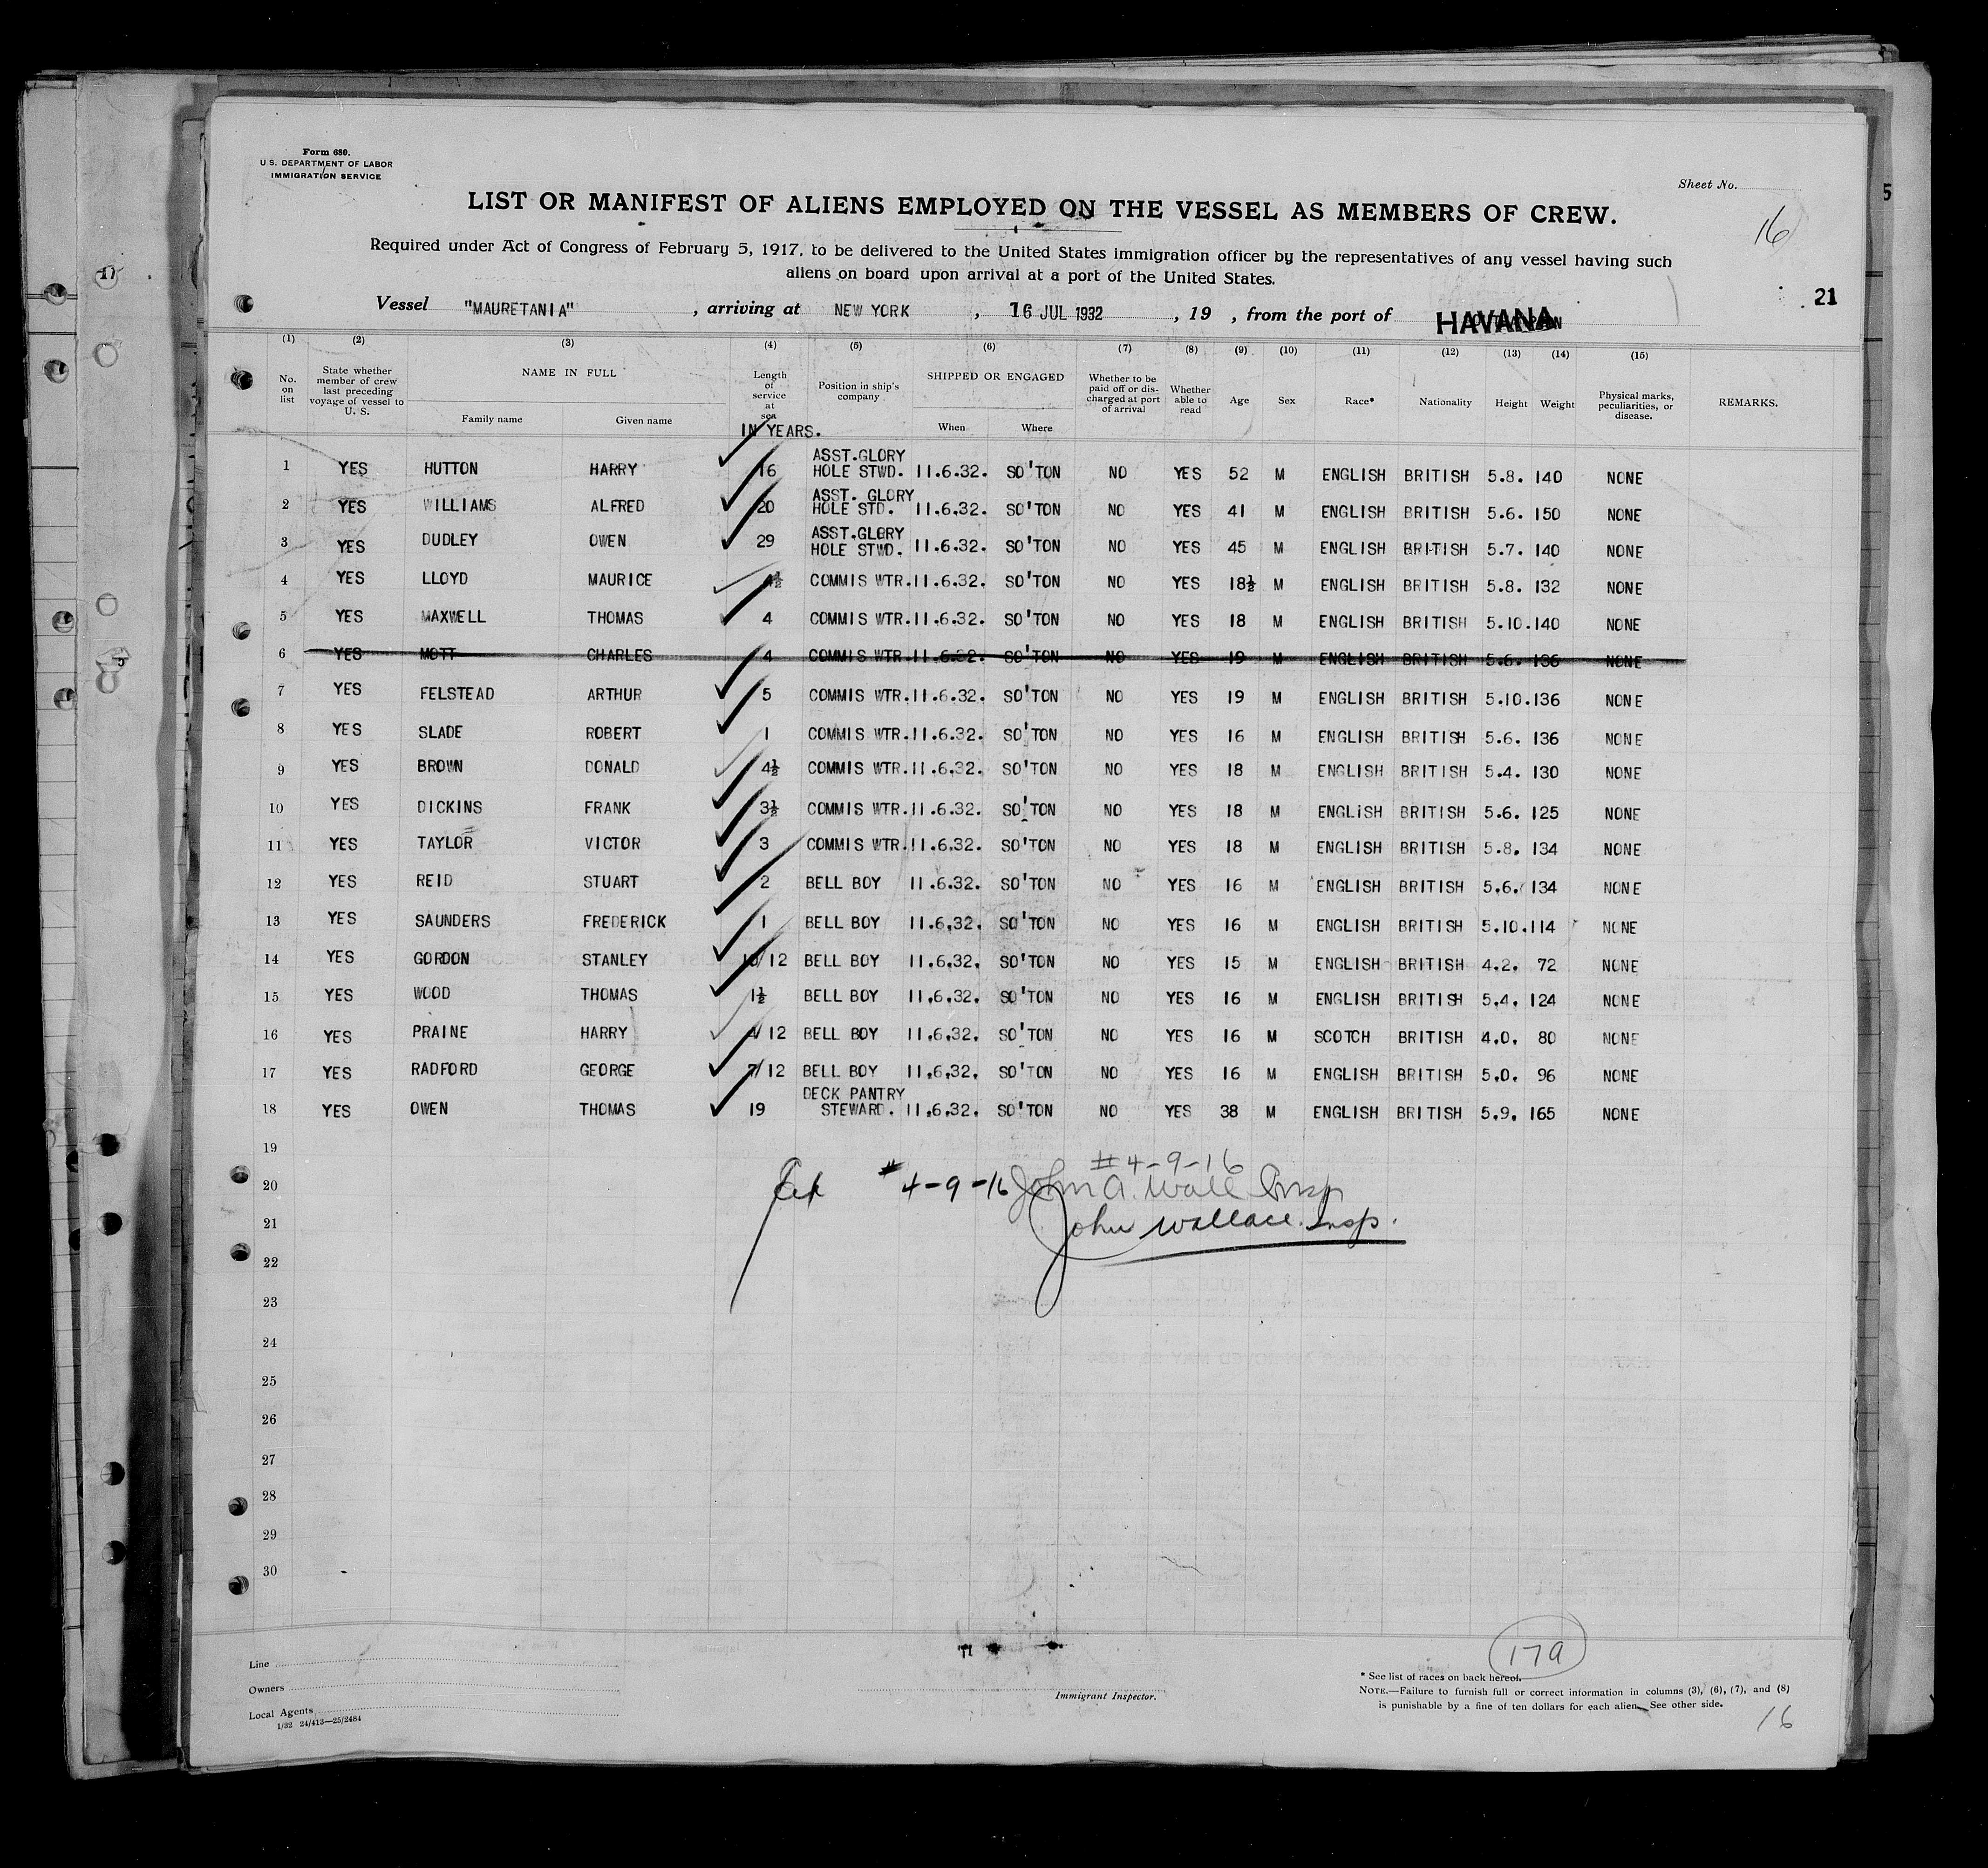 Form 680.
U.S. DEPARTMENT OF LABOR
IMMIGRATION SERVICE
Sheet No.
16
LIST OR MANIFEST OF ALIENS EMPLOYED ON THE VESSEL AS MEMBERS OF CREW.
Required under Act of Congress of February 5, 1917, to be delivered to the United States immigration officer by the representatives of any vessel having such
aliens on board upon arrival at a port of the United States.
21
Vessel "MAURETANIA", arriving at NEW YORK, 16 JUL 1932, 19 , from the port of HAVANA
(1) (2) (3) (4) (5) (6) (7) (8) (9) (10) (11) (12) (13) (14) (15)
No. on list State whether member of crew last preceding voyage of vessel to U. S. NAME IN FULL Family name Given name Length of service at sea Position in ship's company SHIPPED OR ENGAGED When Where Whether to be paid off or discharged at port of arrival Whether able to read Age Sex Race* Nationality Height Weight Physical marks, peculiarities, or disease. REMARKS.
IN YEARS.
1 YES HUTTON HARRY 16 ASST.GLORY HOLE STWD. 11.6.32. SO'TON NO YES 52 M ENGLISH BRITISH 5.8. 140 NONE
2 YES WILLIAMS ALFRED 20 ASST. GLORY HOLE STD. 11.6.32. SO'TON NO YES 41 M ENGLISH BRITISH 5.6. 150 NONE
3 YES DUDLEY OWEN 29 ASST.GLORY HOLE STWD. 11.6.32. SO'TON NO YES 45 M ENGLISH BRITISH 5.7. 140 NONE
4 YES LLOYD MAURICE 4½ COMMIS WTR. 11.6.32. SO'TON NO YES 18½ M ENGLISH BRITISH 5.8. 132 NONE
5 YES MAXWELL THOMAS 4 COMMIS WTR. 11.6.32. SO'TON NO YES 18 M ENGLISH BRITISH 5.10. 140 NONE
6 YES MOTT CHARLES 4 COMMIS WTR. 11.6.32. SO'TON NO YES 19 M ENGLISH BRITISH 5.6. 136 NONE
7 YES FELSTEAD ARTHUR 5 COMMIS WTR. 11.6.32. SO'TON NO YES 19 M ENGLISH BRITISH 5.10. 136 NONE
8 YES SLADE ROBERT 1 COMMIS WTR. 11.6.32. SO'TON NO YES 16 M ENGLISH BRITISH 5.6. 136 NONE
9 YES BROWN DONALD 4½ COMMIS WTR. 11.6.32. SO'TON NO YES 18 M ENGLISH BRITISH 5.4. 130 NONE
10 YES DICKINS FRANK 3½ COMMIS WTR. 11.6.32. SO'TON NO YES 18 M ENGLISH BRITISH 5.6. 125 NONE
11 YES TAYLOR VICTOR 3 COMMIS WTR. 11.6.32. SO'TON NO YES 18 M ENGLISH BRITISH 5.8. 134 NONE
12 YES REID STUART 2 BELL BOY 11.6.32. SO'TON NO YES 16 M ENGLISH BRITISH 5.6. 134 NONE
13 YES SAUNDERS FREDERICK 1 BELL BOY 11.6.32. SO'TON NO YES 16 M ENGLISH BRITISH 5.10. 114 NONE
14 YES GORDON STANLEY 10/12 BELL BOY 11.6.32. SO'TON NO YES 15 M ENGLISH BRITISH 4.2. 72 NONE
15 YES WOOD THOMAS 1½ BELL BOY 11.6.32. SO'TON NO YES 16 M ENGLISH BRITISH 5.4. 124 NONE
16 YES PRAINE HARRY 4/12 BELL BOY 11.6.32. SO'TON NO YES 16 M SCOTCH BRITISH 4.0. 80 NONE
17 YES RADFORD GEORGE 7/12 BELL BOY 11.6.32. SO'TON NO YES 16 M ENGLISH BRITISH 5.0. 96 NONE
18 YES OWEN THOMAS 19 DECK PANTRY STEWARD. 11.6.32. SO'TON NO YES 38 M ENGLISH BRITISH 5.9. 165 NONE
19
#4-9-16
20 #4-9-16 John A. Wall Insp
21 John Wallace Insp.
22
23
24
25
26
27
28
29
30
17a
Line
Owners
Local Agents
1/32 24/413—25/2484
Immigrant Inspector.
* See list of races on back hereof.
NOTE.—Failure to furnish full or correct information in columns (3), (6), (7), and (8)
is punishable by a fine of ten dollars for each alien. See other side.
16
17
5